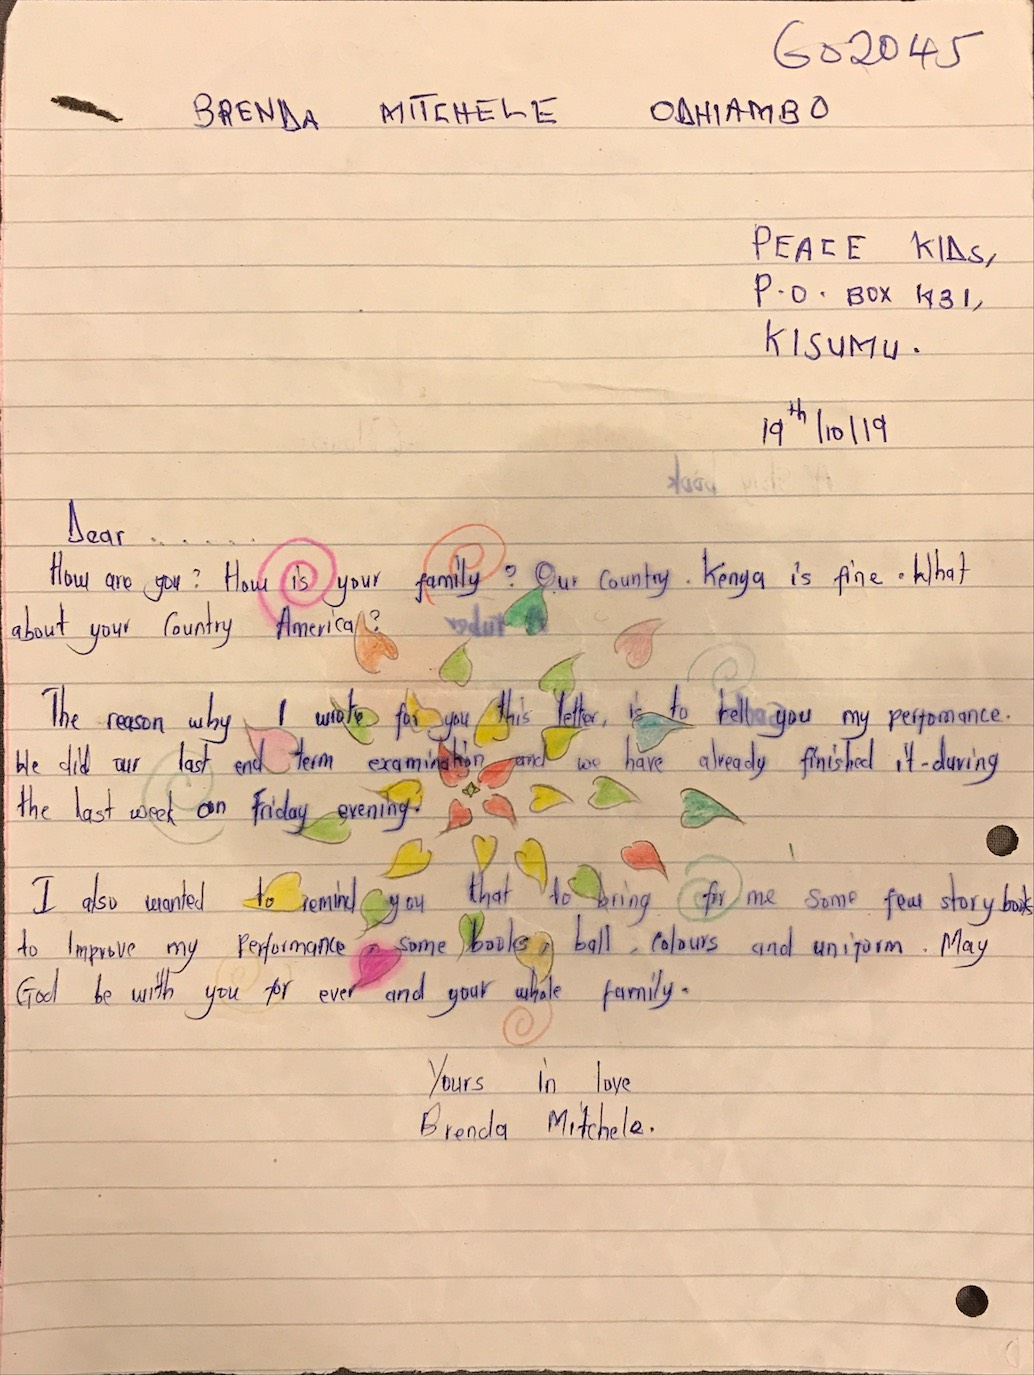 GO2045
BRENDA MITCHELE ODHIAMBO
PEACE KIDS,
P.O. BOX 1431,
KISUMU.
19th/10/19
Dear ......
How are you? How is your family? Our Country. Kenya is fine. What
about your Country America?
The reason why I wrote for you this letter, is to tell you my perfomance.
We did our last end term examination and we have already finished it-during
the last week on Friday evening.
I also wanted to remind you that to bring for me some few story books
to Improve my performance, some books, ball, colours and uniform. May
God be with you for ever and your whole family.
Yours in love
Brenda Mitchele.